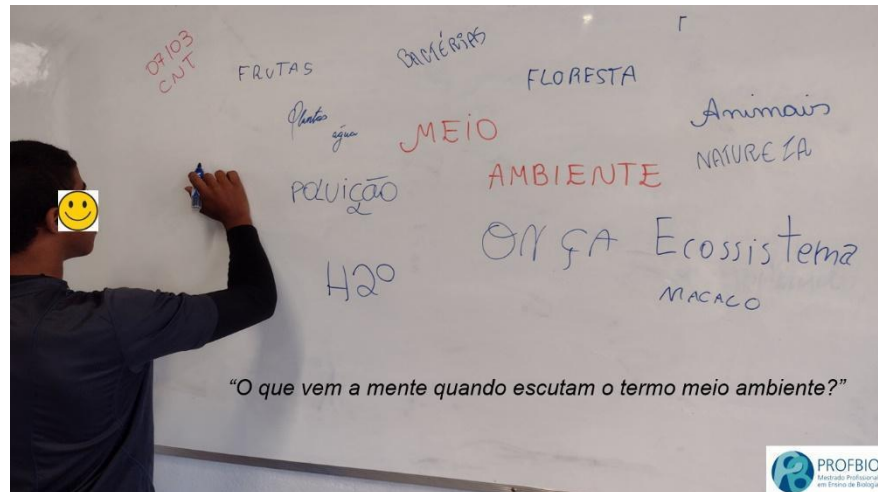 07/03
CNT
FRUTAS
BACTÉRIAS
FLORESTA
Plantas
água
MEIO
AMBIENTE
Animais
NATUREZA
POLUIÇÃO
ONÇA
Ecossistema
H2O
MACACO
“O que vem a mente quando escutam o termo meio ambiente?”
PROFBIO
Mestrado Profissional
em Ensino de Biologia